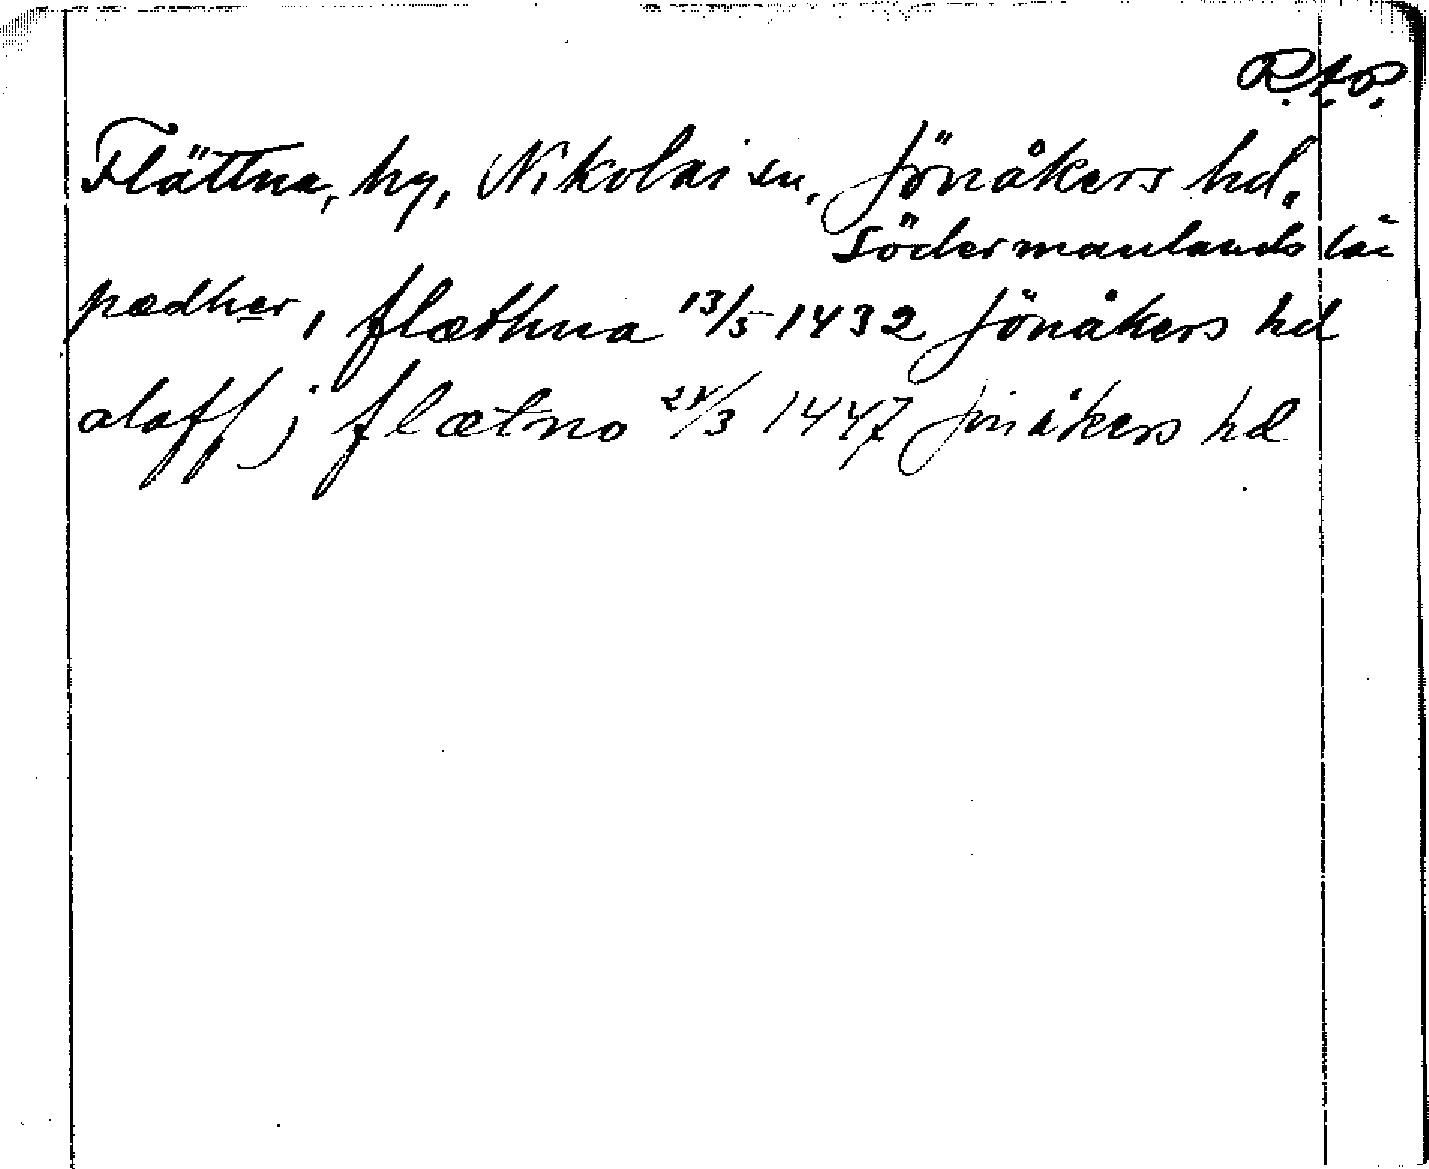 R.A.P.
Flättna, by, Nikolai sn, Jönåkers hd.
Södermanlands län
pædher, i flæthna 13/5 1432 Jönåkers hd
olaff j flætno 24/3 1447 Jönåkers hd